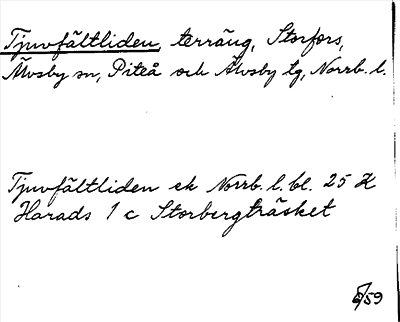 Tjuvfältliden, terräng, Storfors,
Älvsby sn, Piteå och Älvsby tg, Norrb. l.
Tjuvfältliden ek Norrb. l. bl. 25 K
Harads 1 c Storbergträsket
5/59